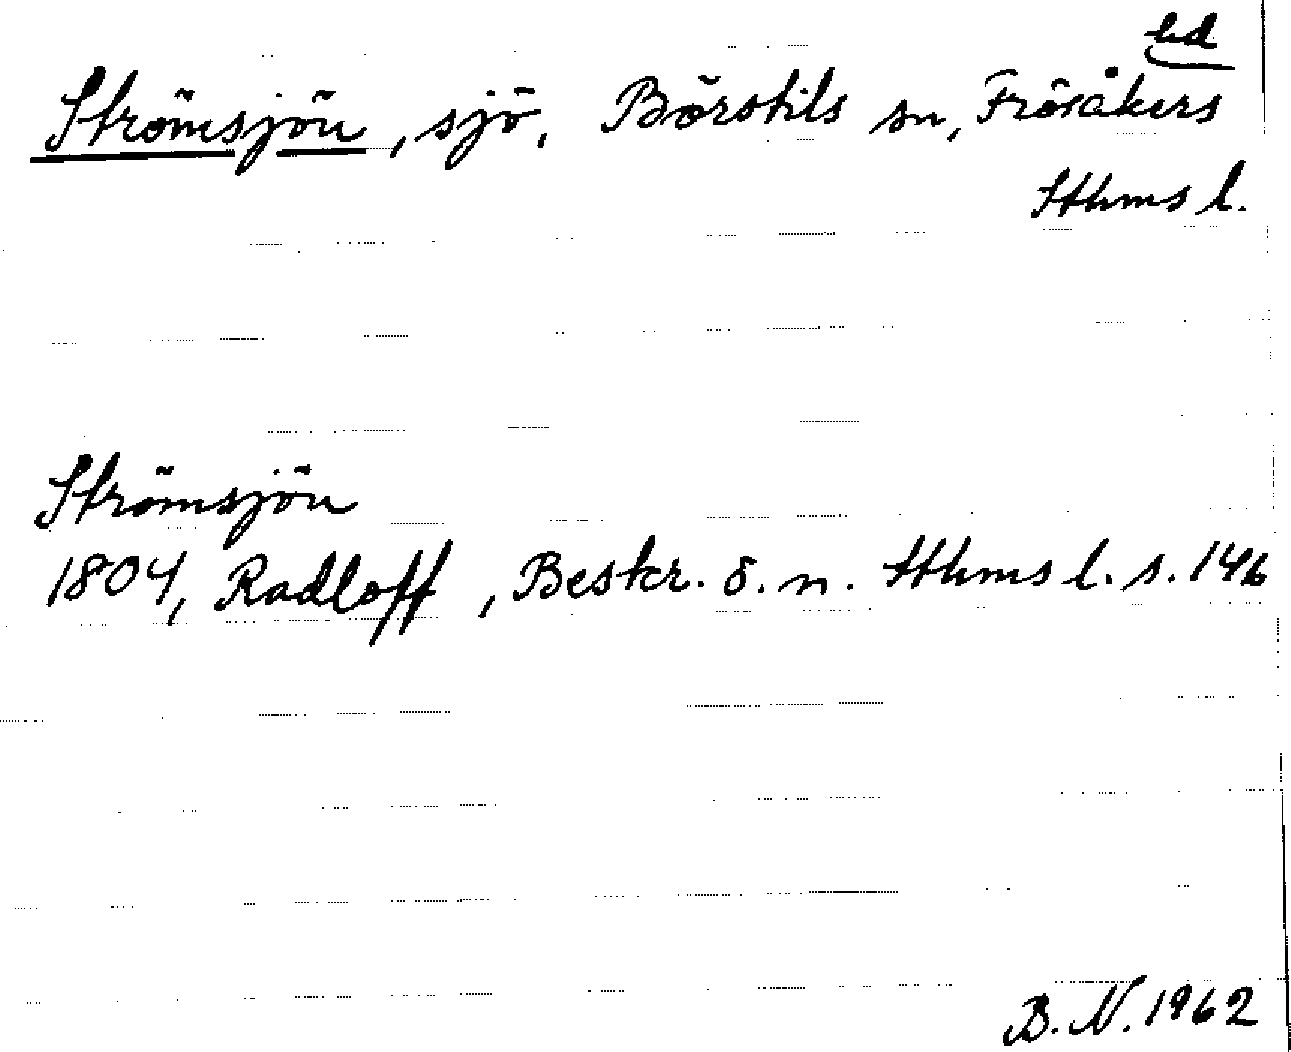 Strömsjön, sjö, Börstils sn, Frösåkers hd
Sthms l.
Strömsjön
1804, Radloff, Beskr. ö. n. Sthms l. s. 146
B. N. 1962